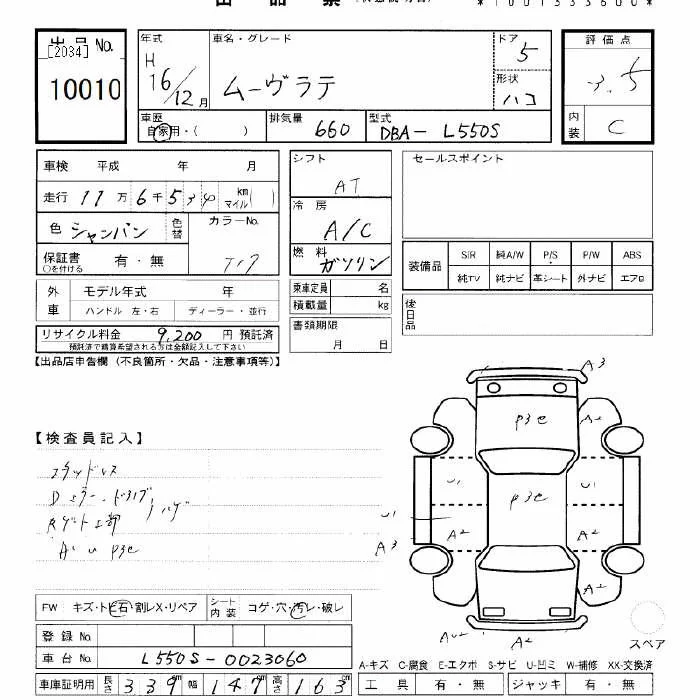 *1001333600*
出品No. [2034]
10010
年式 H 16/12月
車名・グレード ムーヴラテ
ドア 5
形状 ハコ
評価点 3.5
内装 C
車歴 自家用・( )
排気量 660
型式 DBA-L550S
車検 平成 年 月
走行 11万 6千 5 km マイル( )
色 シャンパン 色替
カラーNo. T17
保証書 ○を付ける 有・無
外車 モデル年式 年
ハンドル 左・右 ディーラー・並行
リサイクル料金 9,200 円 預託済
預託済で精算希望される方は金額記入して下さい
シフト AT
冷房 A/C
燃料 ガソリン
乗車定員 名
積載量 kg
書類期限 月 日
セールスポイント
装備品 S/R 純A/W P/S P/W ABS
純TV 純ナビ 革シート 外ナビ エアロ
後日品
【出品店申告欄(不良箇所・欠品・注意事項等)】
【検査員記入】
スタッドレス
Dミラー・ドアノブ ハゲ
Rゲート上部
A・U P3e
A3
P3e
A2
U1
U1
P3e
U1
A3
A2
A2
A2
AU2
A2
スペア
FW キズ・トビ石・割レX・リペア
シート内装 コゲ・穴・汚レ・破レ
登録No.
車台No. L550S-0023060
車庫証明用 長さ 339cm 幅 147cm 高さ 163cm
A-キズ C-腐食 E-エクボ S-サビ U-凹ミ W-補修 XX-交換済
工具 有・無 ジャッキ 有・無